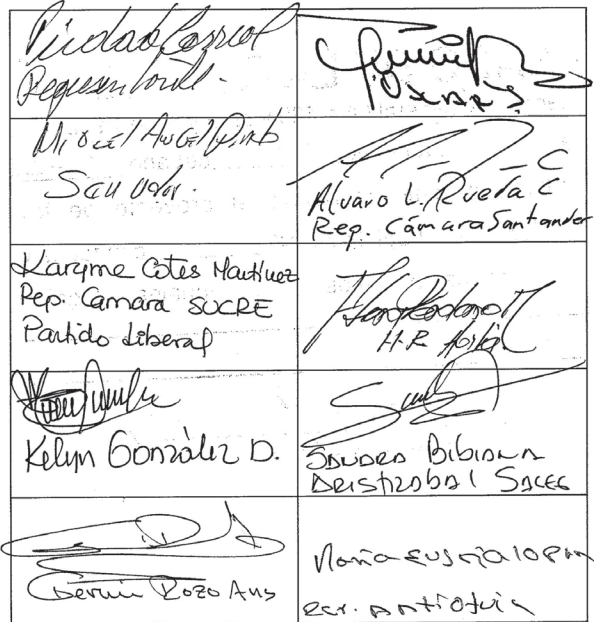 Piedad Correal
Representante.
Miguel Angel Pinto
Senador.
Alvaro L. Rueda C
Rep. Cámara Santander
Karyme Cotes Martínez
Rep. Camara SUCRE
Partido Liberal
H.R.
Kelyn González D.
SANDRA BIBIANA
ARISTIZABAL SALEG
Germán Rozo Anis
María Eugenia Lopera
Rep. Antioquia